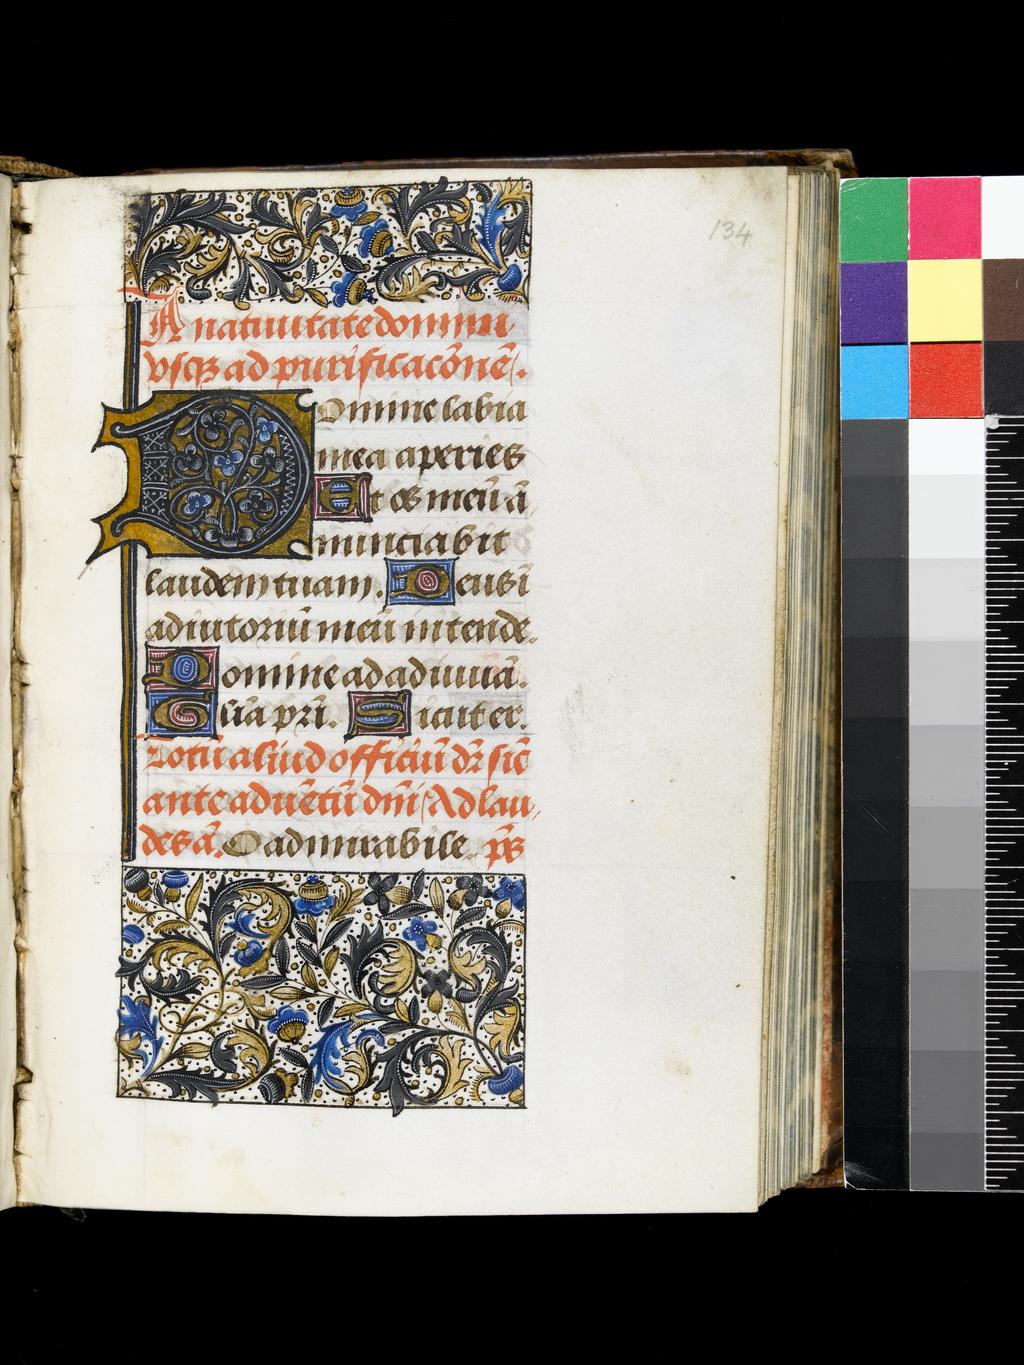 134
A natiuitate domini
vsq3 ad purificacōnē.
Domine labia
mea aperies
Et os meū ā
nunciabit
laudem tuam. Deus ī
adiutoriū meū intende.
Domine ad adiuuā.
Glīa pr̄i. Sicut er.
Totū aliud officiū dr̄ sic̄
ante aduētū dn̄i Ad lau
des ā. O admirabile p̄s